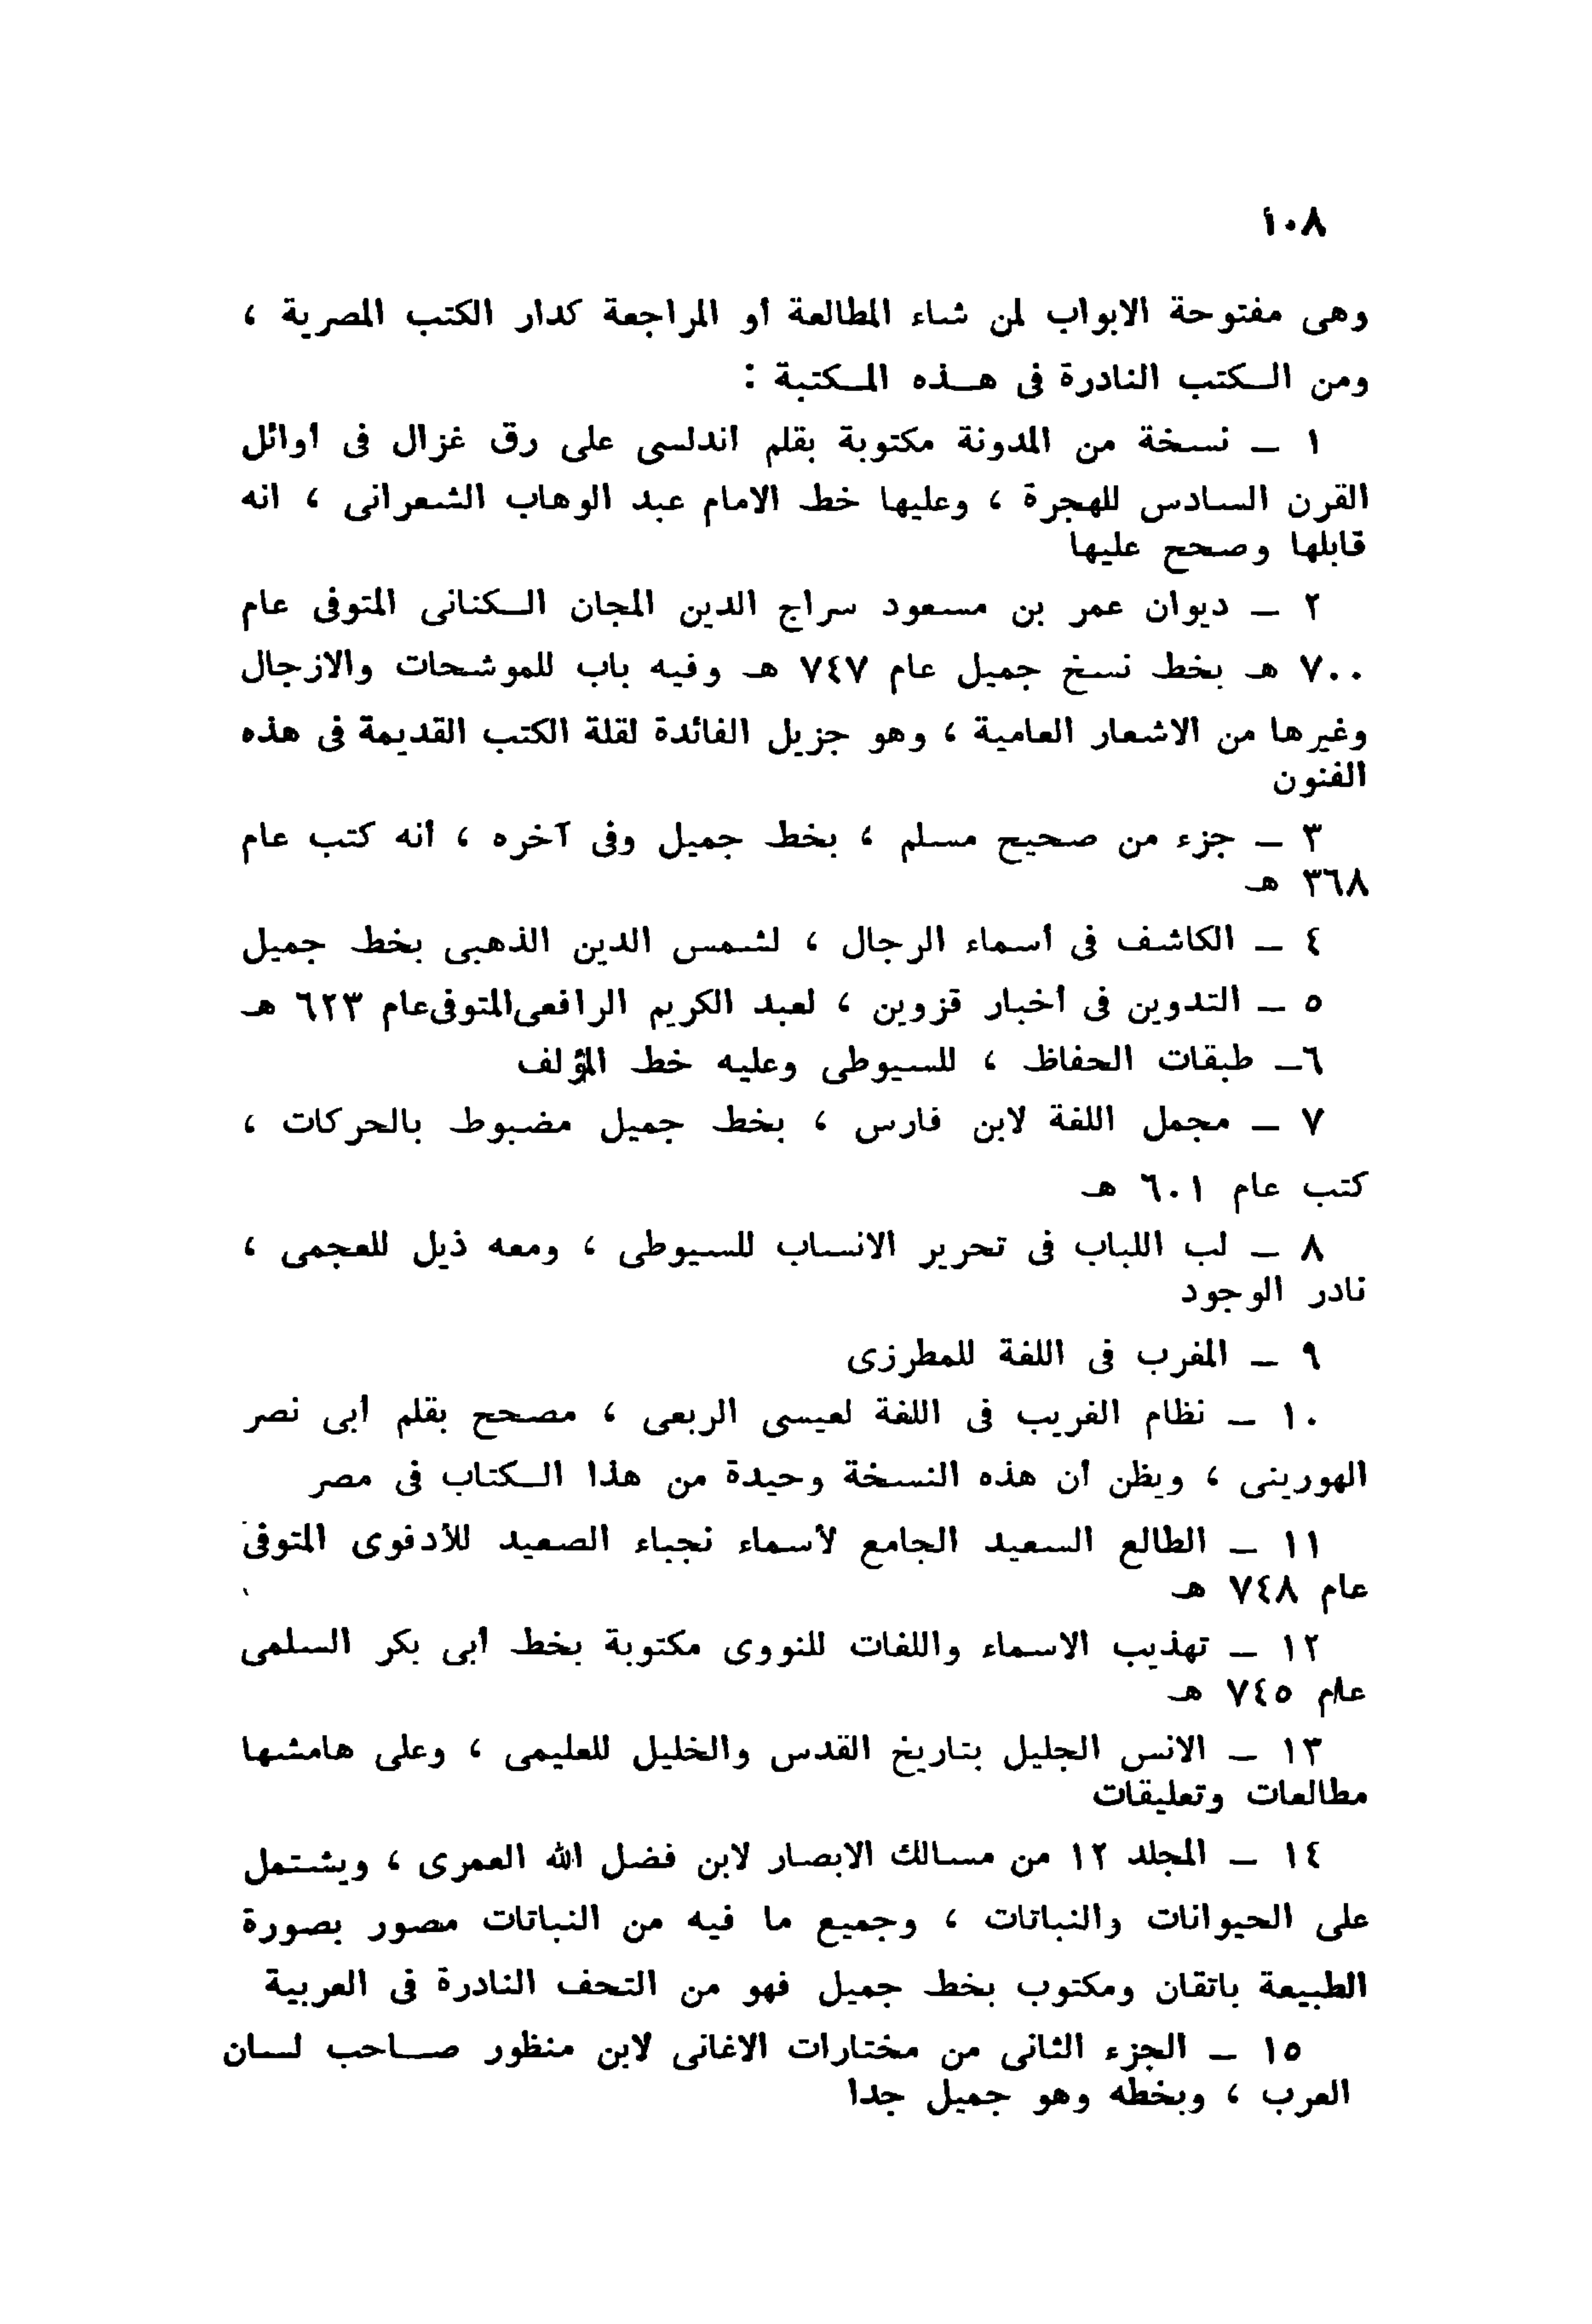 ١٠٨
وهى مفتوحة الابواب لمن شاء المطالعة أو المراجعة كدار الكتب المصرية ،
ومن الـكتب النادرة فى هـذه المـكتبة :
١ ـ نسخة من المدونة مكتوبة بقلم اندلسى على رق غزال فى أوائل
القرن السادس للهجرة ، وعليها خط الامام عبد الوهاب الشعرانى ، انه
قابلها وصحح عليها
٢ ـ ديوان عمر بن مسعود سراج الدين المجان الـكنانى المتوفى عام
٧٠٠ هـ بخط نسخ جميل عام ٧٤٧ هـ وفيه باب للموشحات والازجال
وغيرها من الاشعار العامية ، وهو جزيل الفائدة لقلة الكتب القديمة فى هذه
الفنون
٣ ـ جزء من صحيح مسلم ، بخط جميل وفى آخره ، أنه كتب عام
٣٦٨ هـ
٤ ـ الكاشف فى أسماء الرجال ، لشمس الدين الذهبى بخط جميل
٥ ـ التدوين فى أخبار قزوين ، لعبد الكريم الرافعى المتوفى عام ٦٢٣ هـ
٦ـ طبقات الحفاظ ، للسيوطى وعليه خط المؤلف
٧ ـ مجمل اللغة لابن فارس ، بخط جميل مضبوط بالحركات ،
كتب عام ٦٠١ هـ
٨ ـ لب اللباب فى تحرير الانساب للسيوطى ، ومعه ذيل للعجمى ،
نادر الوجود
٩ ـ المغرب فى اللغة للمطرزى
١٠ ـ نظام الغريب فى اللغة لعيسى الربعى ، مصحح بقلم أبى نصر
الهورينى ، ويظن أن هذه النسخة وحيدة من هذا الـكتاب فى مصر
١١ ـ الطالع السعيد الجامع لأسماء نجباء الصعيد للأدفوى المتوفى
عام ٧٤٨ هـ
١٢ ـ تهذيب الاسماء واللغات للنووى مكتوبة بخط أبى بكر السلمى
عام ٧٤٥ هـ
١٣ ـ الانس الجليل بتاريخ القدس والخليل للعليمى ، وعلى هامشها
مطالعات وتعليقات
١٤ ـ المجلد ١٢ من مسالك الابصار لابن فضل الله العمرى ، ويشتمل
على الحيوانات والنباتات ، وجميع ما فيه من النباتات مصور بصورة
الطبيعة باتقان ومكتوب بخط جميل فهو من التحف النادرة فى العربية
١٥ ـ الجزء الثانى من مختارات الاغانى لابن منظور صـاحب لسـان
العرب ، وبخطه وهو جميل جدا